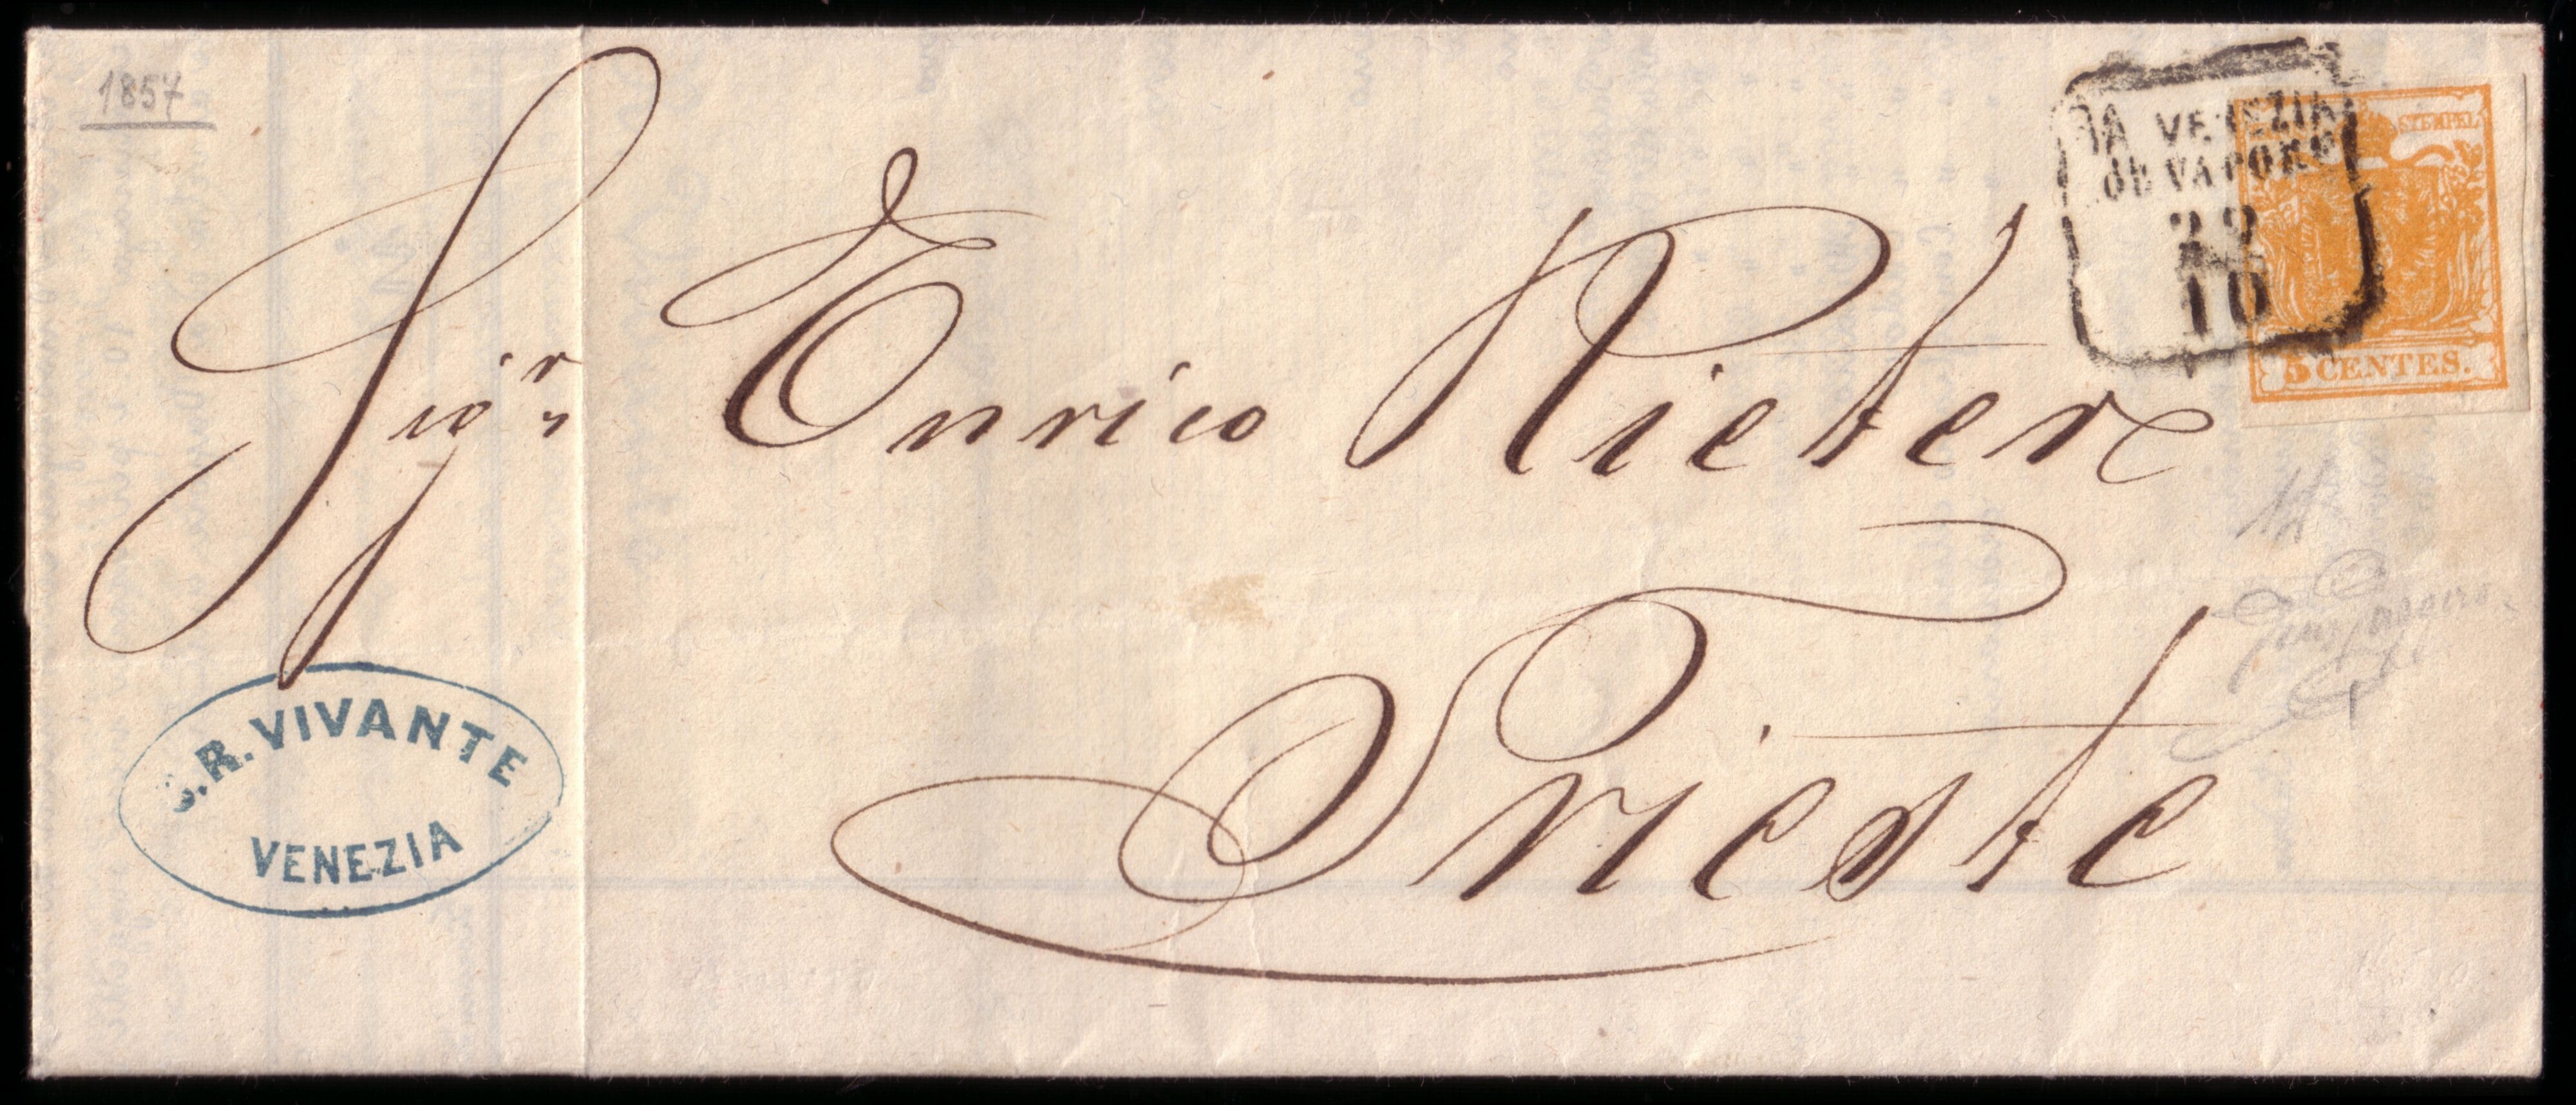 1857
DA VENEZIA
COL VAPORE
22
10
STEMPEL
5 CENTES.
Sigr Enrico Rieter
Trieste
S. R. VIVANTE
VENEZIA